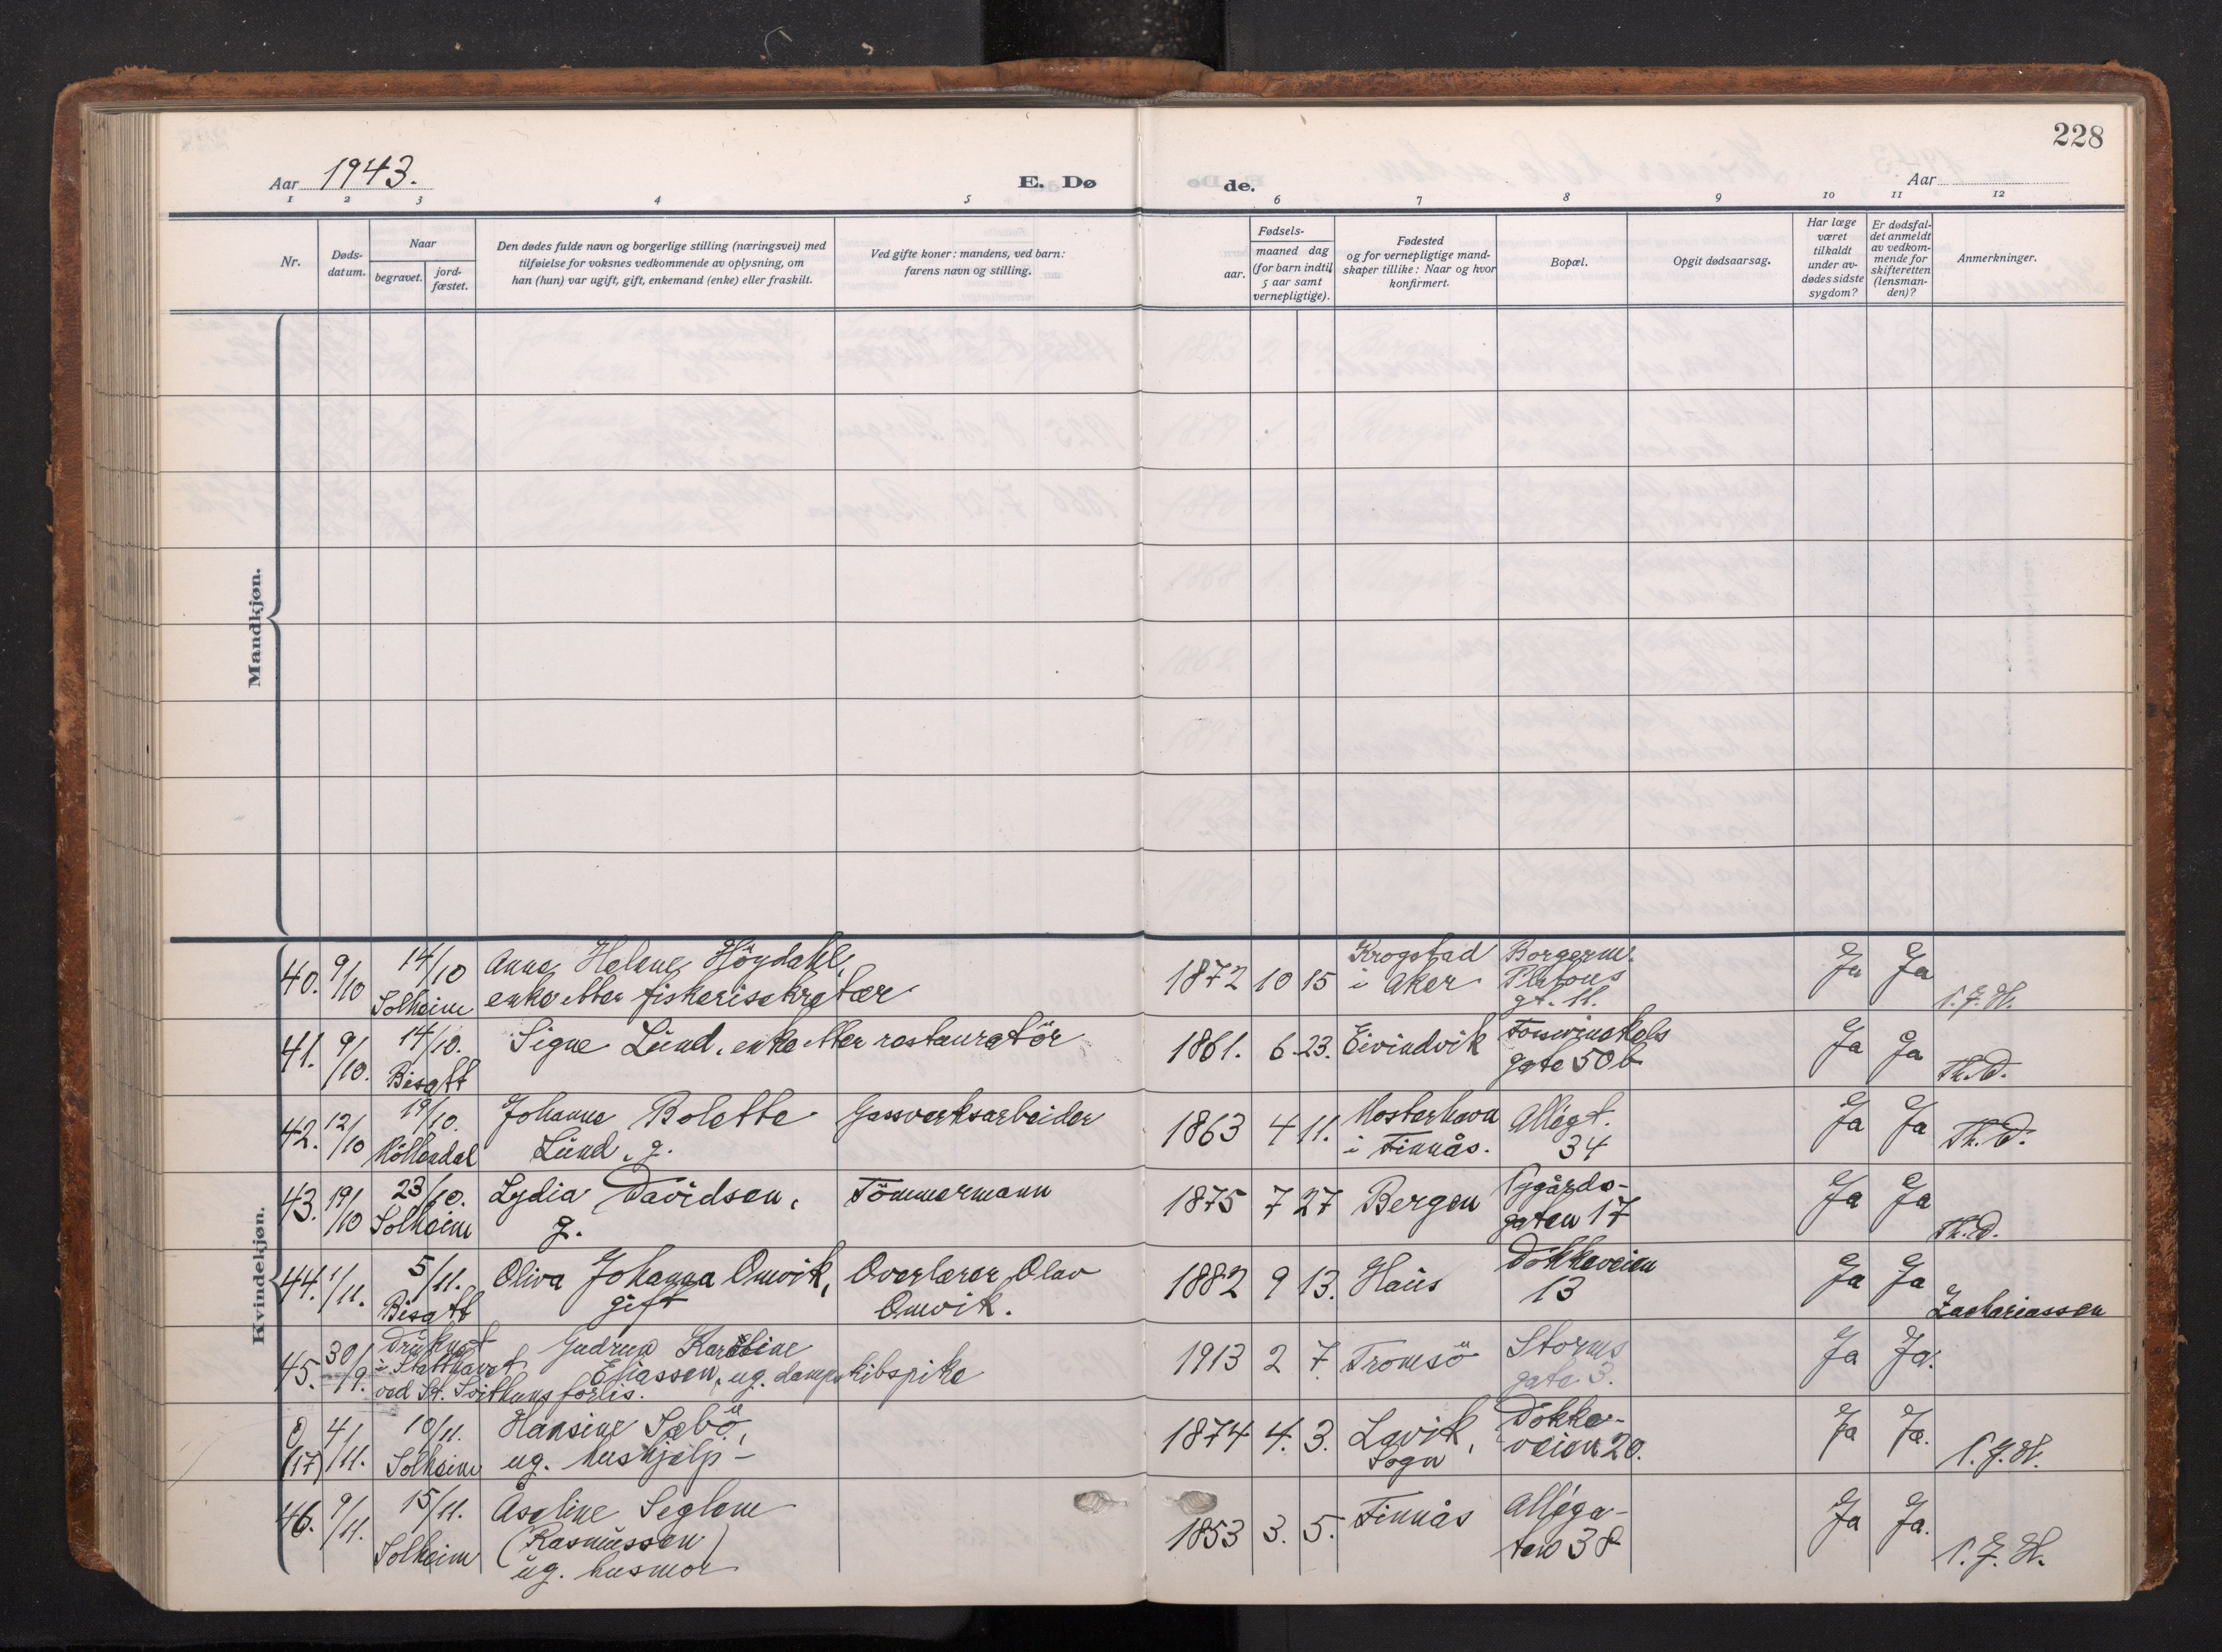 228
Aar 1943.
E. Dø
de.
Aar
1 2 3 4 5 6 7 8 9 10 11 12
Nr.
Døds-
datum.
Naar
begravet.
jord-
fæstet.
Den dødes fulde navn og borgerlige stilling (næringsvei) med
tilføielse for voksnes vedkommende av oplysning, om
han (hun) var ugift, gift, enkemand (enke) eller fraskilt.
Ved gifte koner: mandens, ved barn:
farens navn og stilling.
Fødsels-
aar.
maaned dag
(for barn indtil
5 aar samt
vernepligtige).
Fødested
og for vernepligtige mand-
skaper tillike: Naar og hvor
konfirmert.
Bopæl.
Opgit dødsaarsag.
Har læge
været
tilkaldt
under av-
dødes sidste
sygdom?
Er dødsfal-
det anmeldt
av vedkom-
mende for
skifteretten
(lensman-
den)?
Anmerkninger.
Mandkjøn.
Kvindekjøn.
40. 9/10 14/10 Anna Helene Höydahl, 1872 10 15 Krogstad Borgerm. Ja Ja
Solheim enke etter fiskerisekretær i Aker Platous
gt. 11.
41. 9/10. 14/10. Signe Lund, enke etter restauratör 1861. 6. 23. Eivindvik Ja Ja
Bisatt gate 50 b Th. D.
42. 12/10 19/10. Johanna Bolette Gassverksarbeider 1863 4 11. Mosterhavn Allégt. Ja Ja
Möllendal Lund, g. i Finnås. 34 Th. D.
43. 19/10 23/10. Lydia Davidsen, Tömmermann 1875 7 27 Bergen Nygårds- Ja Ja
Solheim g. gaten 17 Th. D.
44. 1/11. 5/11. Oliva Johanna Omvik, Overlærer Olav 1882 9 13. Haus Dokkeveien Ja Ja
Bisatt gift Omvik. 13 Zachariassen
45. 30/9. Druknet Gudrun Karoline 1913 2 7. Tromsö Storms Ja Ja.
i Statthavet Eliassen, ug. dampskibspike gate 3.
ved St. Svithuns forlis.
0 4/11. 10/11. Hansine Sæbö, 1874 4. 3. Lavik, Dokke- Ja Ja.
(17) Solheim ug. hushjelp - Sogn veien 20.
46. 9/11. 15/11. Åseline Seglem 1853 3. 5. Finnås Alléga- Ja Ja.
Solheim (Rasmussen) ten 38
ug. husmor